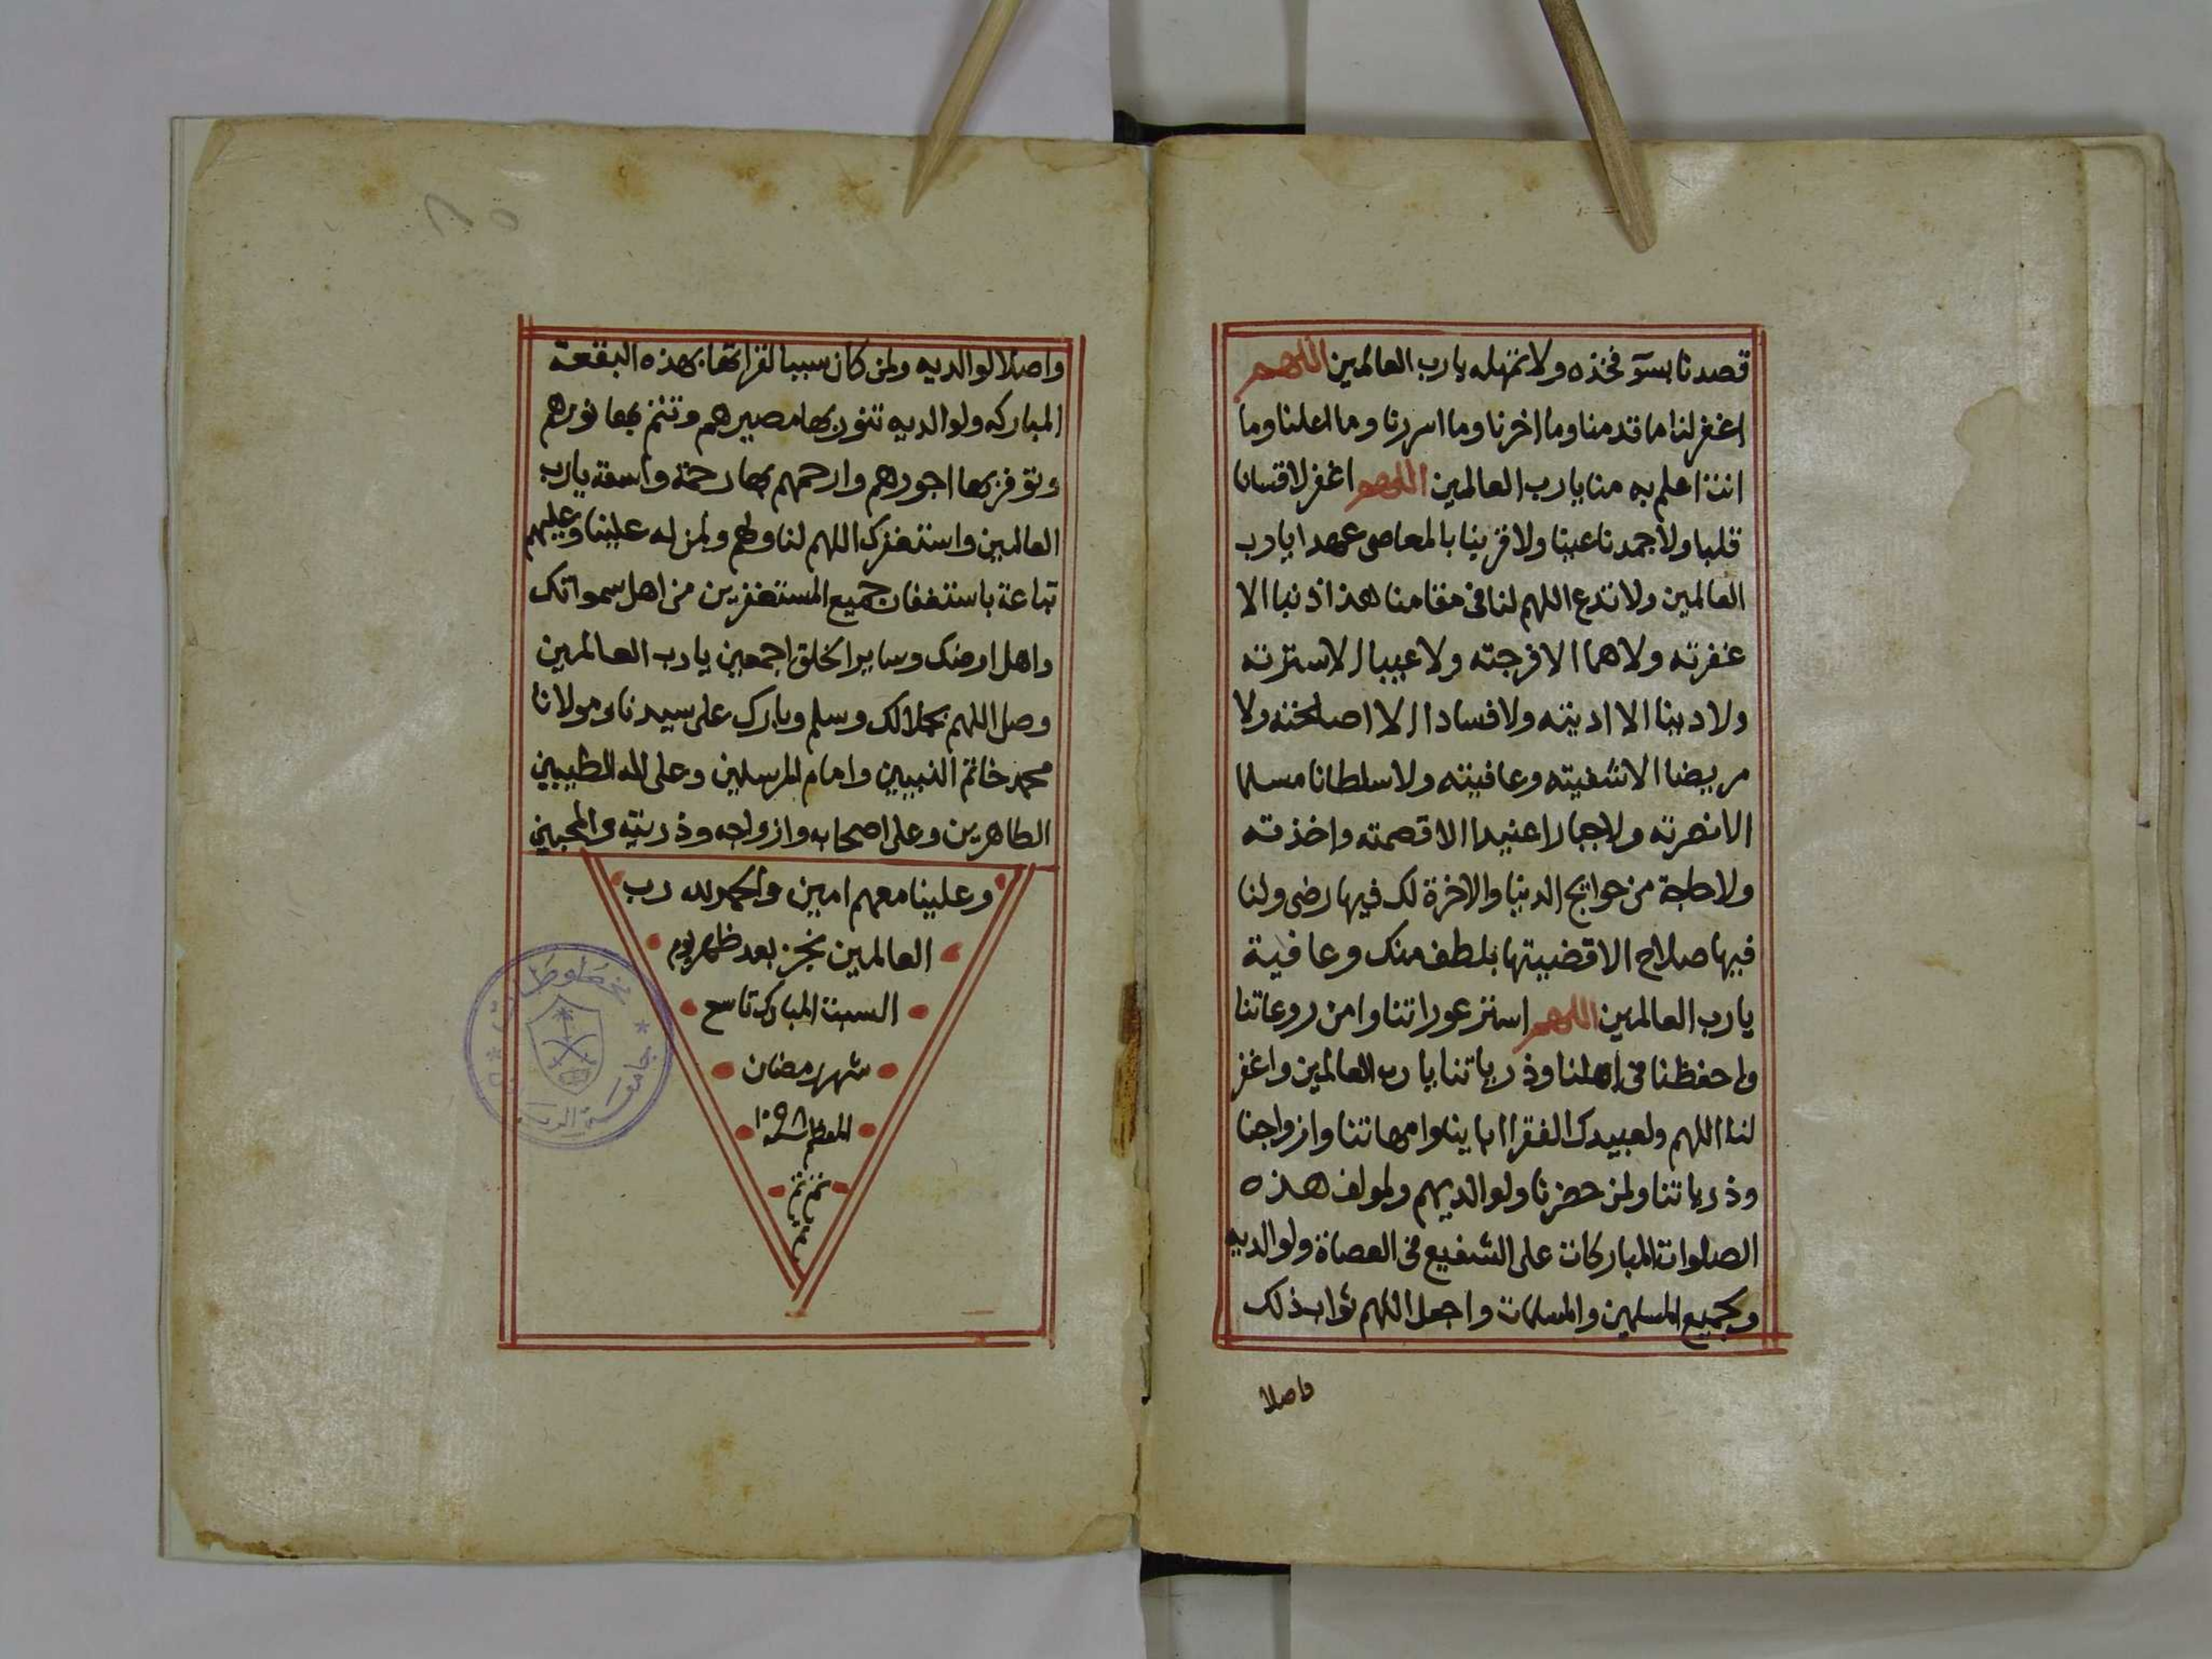 قصدنا بسوٓ فخذه ولا تمهله يا رب العالمين اللهم
اغفر لنا ما قدمنا وما اخرنا وما اسررنا وما اعلنا وما
انت اعلم به منا يا رب العالمين اللهم اغفر لا قسانا
قلبا ولا جمدنا عينا ولا قربنا بالمعاصى عهدا يا رب
العالمين ولا تدع اللهم لنا فى مقامنا هذا ذنبا الا
غفرته ولا هما الا فرجته ولا عيبا الا سترته
ولا دينا الا اديته ولا فسادا الا اصلحته ولا
مريضا الا شفيته وعافيته ولا سلطانا مسلما
الا نصرته ولا جبارا عنيدا الا قصمته واخذته
ولا حاجة من حوايج الدنيا والاخرة لك فيها رضى ولنا
فيها صلاح الا قضيتها بلطف منك وعافية
يا رب العالمين اللهم استر عوراتنا وامن روعاتنا
واحفظنا فى اهلنا وذرياتنا يا رب العالمين واغفر
لنا اللهم ولعبيدك الفقرا اباينا وامهاتنا وازواجنا
وذرياتنا ولمن حضرنا ولوالديهم ولمولف هذه
الصلوات المباركات على الشفيع فى العصاة ولوالديه
ولجميع المسلمين والمسلمات واجعل اللهم ثواب ذلك
واصلا
واصلا لوالديه ولمن كان سببا لقراتها بهذه البقعة
المباركه ولوالديه تنور بها مصيرهم وتتم بها نورهم
وتوفر بها اجورهم وارحمهم بها رحمة واسعة يا رب
العالمين واستغفرك اللهم لنا ولهم ولمن له علينا وعليهم
تباعة باستغفار جميع المستغفرين من اهل سمواتك
واهل ارضك وساير الخلق اجمعين يا رب العالمين
وصل اللهم بجلالك وسلم وبارك على سيدنا ومولانا
محمد خاتم النبيين وامام المرسلين وعلى اله الطيبين
الطاهرين وعلى اصحابه وازواجه وذريته والمحبين
وعلينا معهم امين والحمد لله رب
العالمين نجز بعد ظهر يوم
السبت المبارك تاسع
شهر رمضان
المعظم سنة ١٠٩٨
تم تم
تم
٨٥
مخطوطات
جامعة الرياض